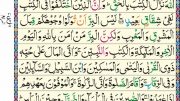 الْكِتٰبَ بِالْحَقِّ ؕ وَاِنَّ الَّذِيْنَ اخْتَلَفُوْا فِى الْكِتٰبِ
لَفِىْ شِقَاقٍۭ بَعِيْدٍ لَيْسَ الْبِرَّ اَنْ تُوَلُّوْا وُجُوْهَكُمْ قِبَلَ
الْمَشْرِقِ وَالْمَغْرِبِ وَلٰكِنَّ الْبِرَّ مَنْ اٰمَنَ بِاللّٰهِ وَالْيَوْمِ
الْاٰخِرِ وَالْمَلٰٓئِكَةِ وَالْكِتٰبِ وَالنَّبِيّٖنَ ۚ وَاٰتَى الْمَالَ عَلٰى حُبِّهٖ
ذَوِى الْقُرْبٰى وَالْيَتٰمٰى وَالْمَسٰكِيْنَ وَابْنَ السَّبِيْلِ ۙ وَالسَّآئِلِيْنَ